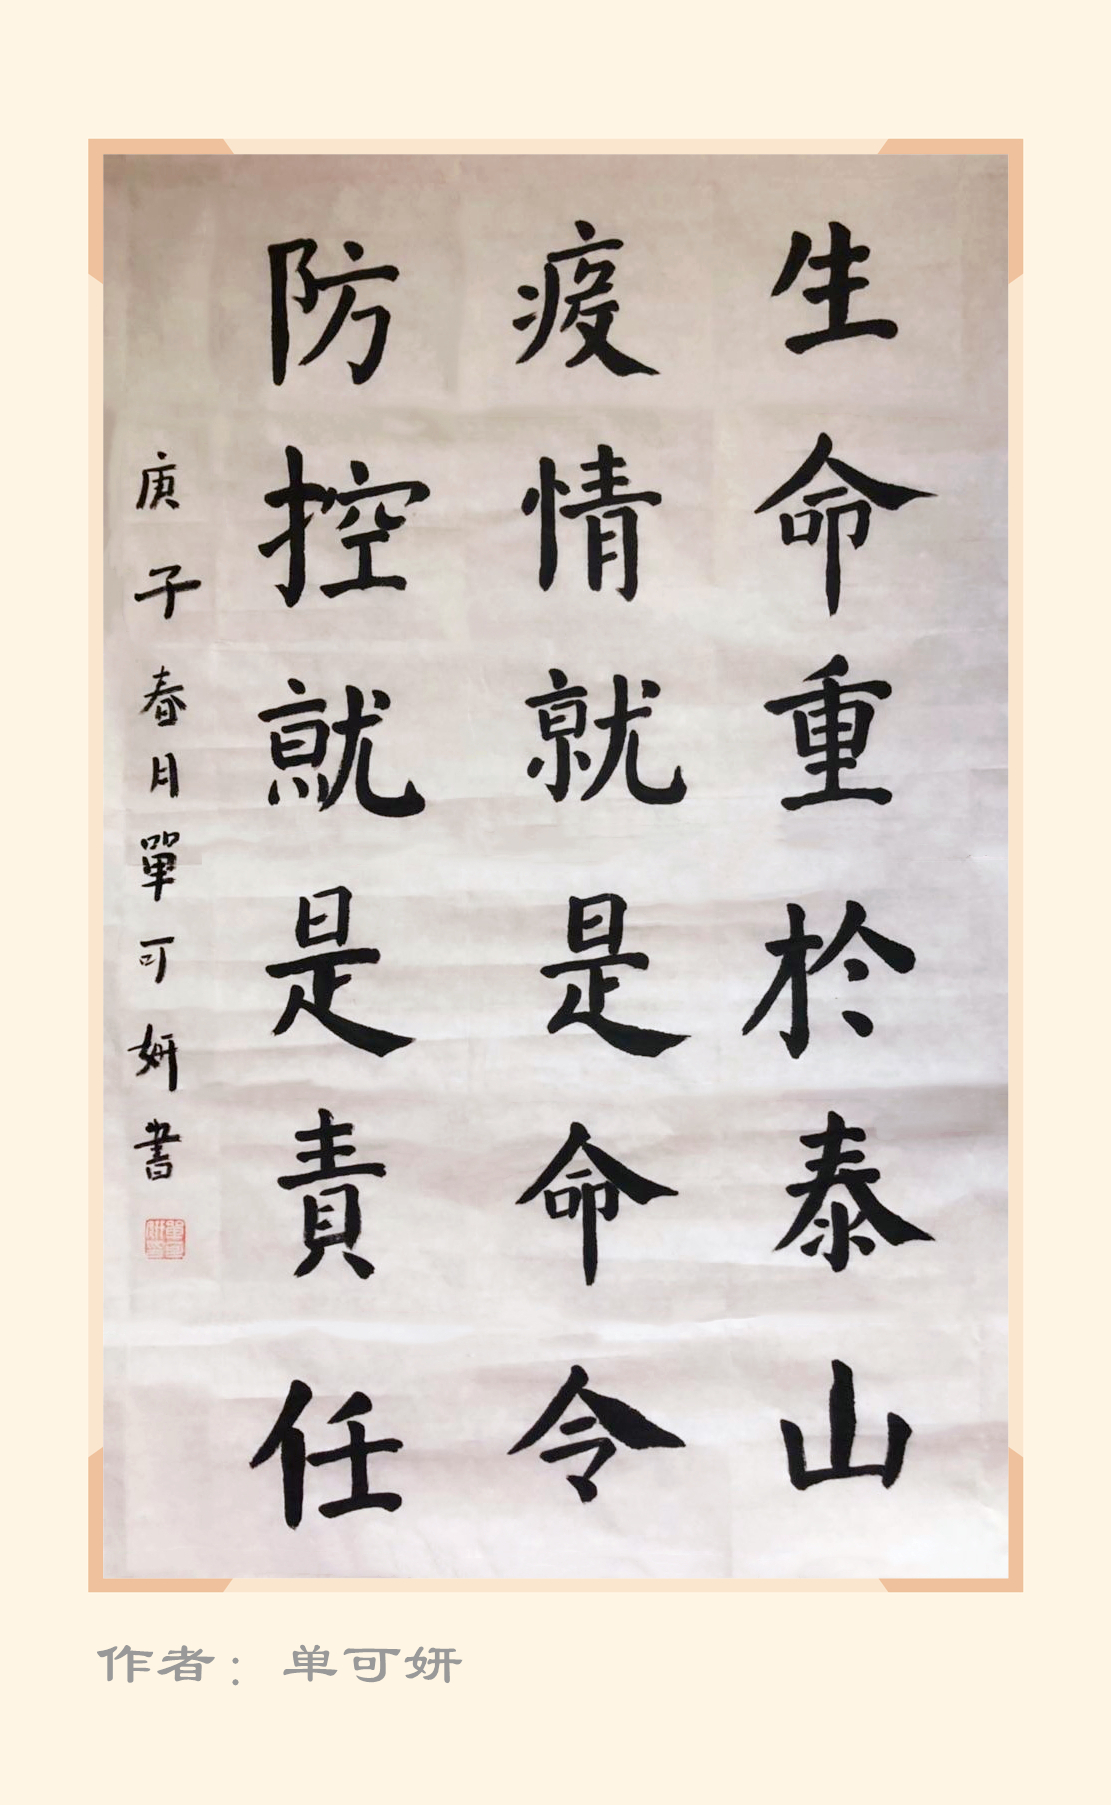 生命重於泰山
疫情就是命令
防控就是責任
庚子春月單可妍書
作者：单可妍